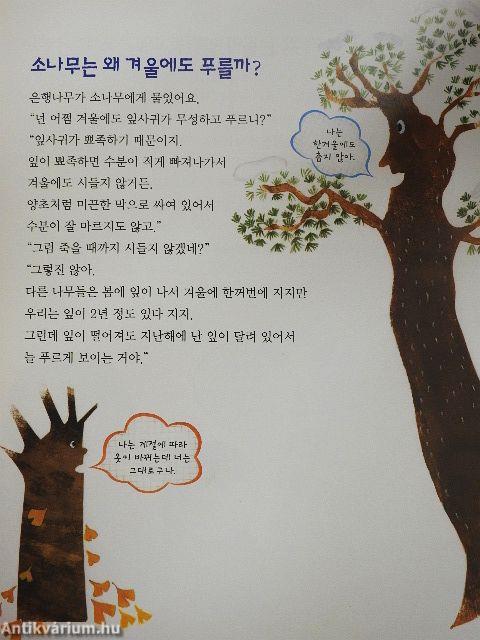 소나무는 왜 겨울에도 푸를까?
은행나무가 소나무에게 물었어요.
"넌 어쩜 겨울에도 잎사귀가 무성하고 푸르니?"
"잎사귀가 뾰족하기 때문이지.
잎이 뾰족하면 수분이 적게 빠져나가서
겨울에도 시들지 않거든.
양초처럼 미끈한 막으로 싸여 있어서
수분이 잘 마르지도 않고."
"그럼 죽을 때까지 시들지 않겠네?"
"그렇진 않아.
다른 나무들은 봄에 잎이 나서 겨울에 한꺼번에 지지만
우리는 잎이 2년 정도 있다 지지.
그런데 잎이 떨어져도 지난해에 난 잎이 달려 있어서
늘 푸르게 보이는 거야."
나는
한겨울에도
춥지 않아.
나는 계절에 따라
옷이 바뀌는데 너는
그대로구나.
Antikvárium.hu